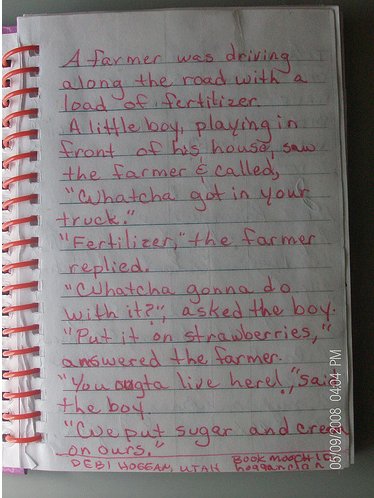 A farmer was driving
along the road with a
load of fertilizer.
A little boy, playing in
front of his house, saw
the farmer & called,
"Whatcha got in your
truck."
"Fertilizer," the farmer
replied.
"Whatcha gonna do
with it?", asked the boy.
"Put it on strawberries,"
answered the farmer.
"You ougta live here!," said
the boy
"We put sugar and cream
on ours."
DEBI HOGGAN, UTAH BOOK MOOCH ID
hogganclan
05/09/2008 04:04 PM